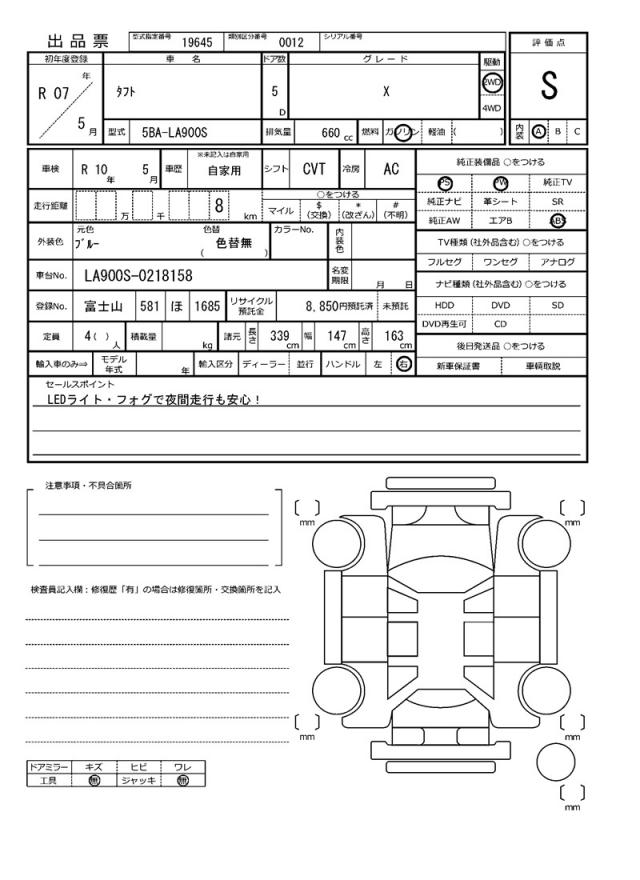 出品票 型式指定番号 19645 類別区分番号 0012 シリアル番号
評価点
S
内装 A B C
初年度登録 車名 ドア数 グレード 駆動
R 07 年 5 月 タフト 5 D X 2WD 4WD
型式 5BA-LA900S 排気量 660 cc 燃料 ガソリン 軽油 ( )
車検 R 10 年 5 月 車歴 ※未記入は自家用 自家用 シフト CVT 冷房 AC
走行距離 万 千 8 km ○をつける
マイル $(交換) *(改ざん) #(不明)
外装色 元色 ブルー 色替 ( 色替無 ) カラーNo. 内装色
車台No. LA900S-0218158 名変期限 月 日
登録No. 富士山 581 ほ 1685 リサイクル預託金 8,850円預託済 未預託
定員 4 ( ) 人 積載量 kg 諸元 長さ 339 cm 幅 147 cm 高さ 163 cm
輸入車のみ⇒ モデル年式 年 輸入区分 ディーラー 並行 ハンドル 左 右
純正装備品 ○をつける
PS PW 純正TV
純正ナビ 革シート SR
純正AW エアB ABS
TV種類 (社外品含む) ○をつける
フルセグ ワンセグ アナログ
ナビ種類 (社外品含む) ○をつける
HDD DVD SD
DVD再生可 CD
後日発送品 ○をつける
新車保証書 車輌取説
セールスポイント
LEDライト・フォグで夜間走行も安心！
注意事項・不具合箇所
検査員記入欄：修復歴「有」の場合は修復箇所・交換箇所を記入
ドアミラー キズ ヒビ ワレ
工具 無 ジャッキ 無
mm
mm
mm
mm
mm